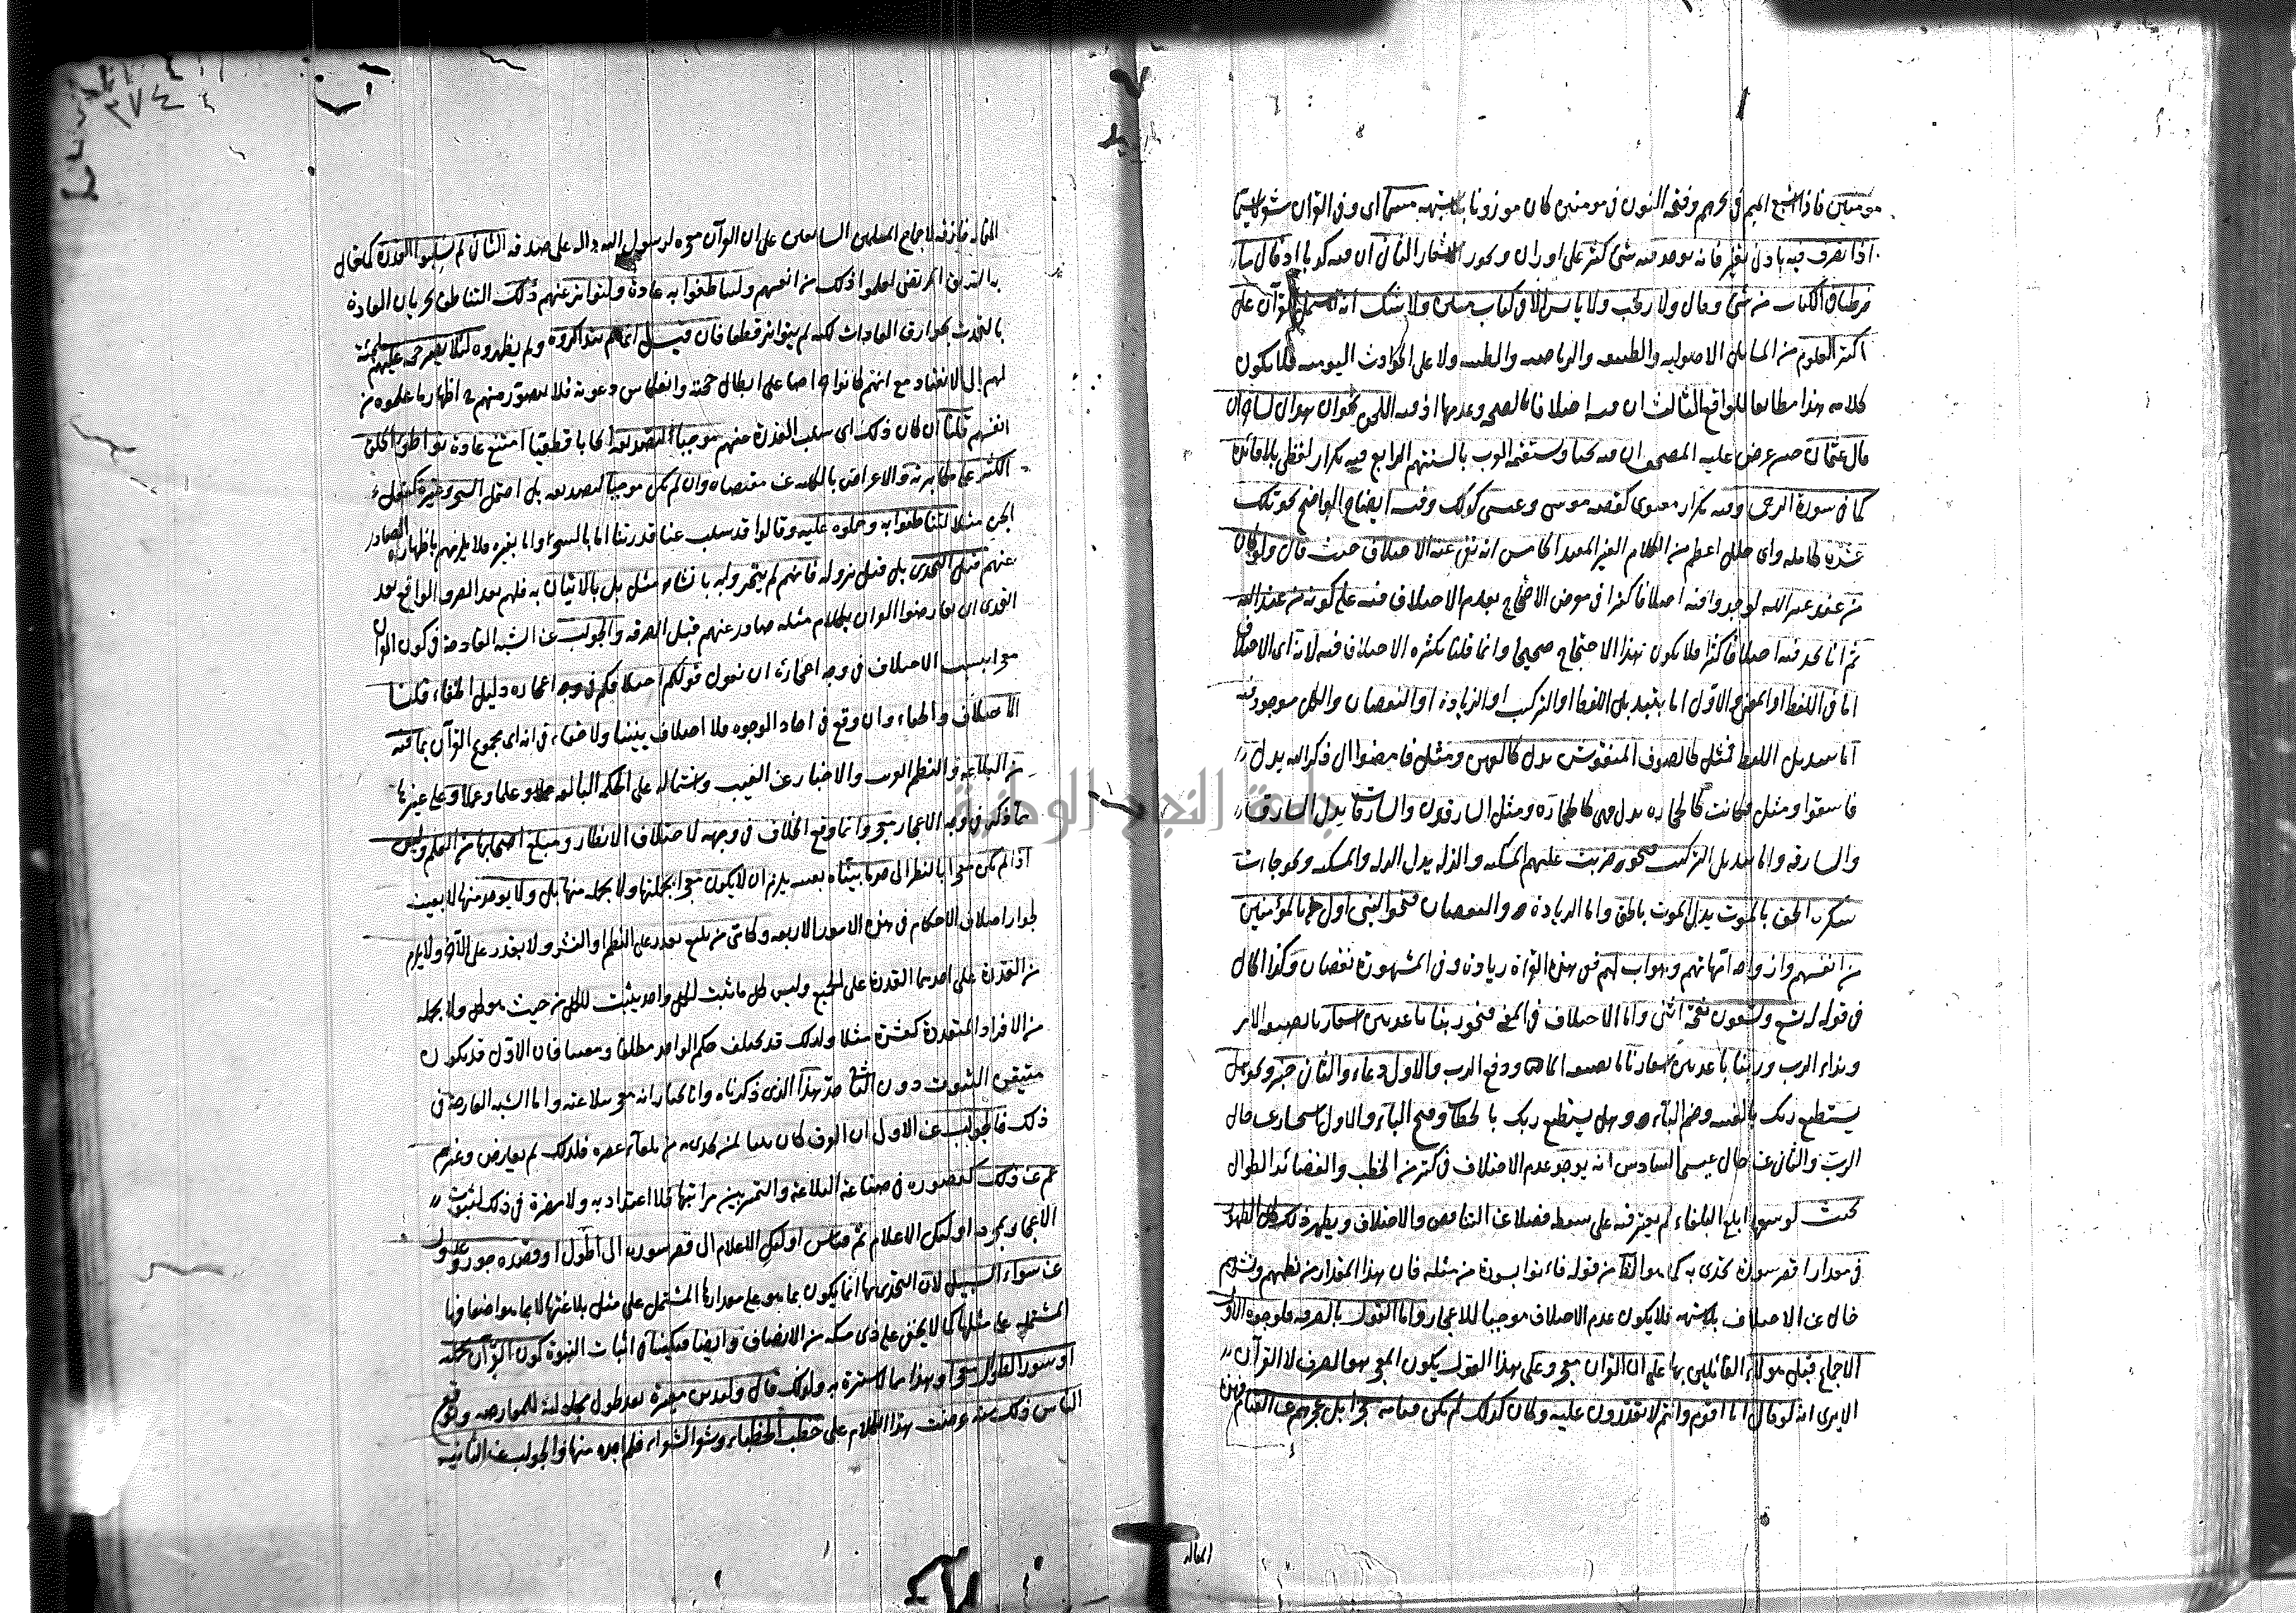 مومنين فاذا اشبع الميم في يخزهم وفتحه النون في مومنين كان موزونا بلا شبهة ومنها اى وفي القرآن شعر لاسيما
اذا تصرف فيه بادنى تغير فانه يوجد فيه شئ كثير على اوزان وبحور الاشعار الثانى ان فيه كذبا اذ قال ما
فرطنا في الكتاب من شئ وقال ولا رطب ولا يابس الا في كتاب مبين ولا شك انه لا يشتمل القرآن على
اكثر العلوم من المسائل الاصولية والطبيعية والرياضية والطبية ولا على الحوادث اليومية فلا يكون
كلامه هذا مطابقا للواقع الثالث ان فيه اختلافا بالصحة وعدمها اذ فيه اللحن نحو ان هذان لساحران
قال عثمان حين عرض عليه المصحف ان فيه لحنا وستقيمه العرب بالسنتهم الرابع فيه تكرار لفظى بلا فائدة
كما في سورة الرحمن وفيه تكرار معنوى كقصة موسى وعيسى كذلك وفيه ايضاح الواضح نحو تلك
عشرة كاملة واى خلل اعظم من الكلام الغير المفيد الخامس انه نفى عنه الاختلاف حيث قال ولو كان
من عند غير الله لوجدوا فيه اختلافا كثيرا في معرض الاحتجاج بعدم الاختلاف فيه على كونه من عند الله
ثم انا نجد فيه اختلافا كثيرا فلا يكون هذا الاحتجاج صحيحا وانما قلنا بكثرة الاختلاف فيه لانه اى الاختلاف
اما في اللفظ او المعنى والاول اما بتبديل اللفظ او التركيب او الزيادة او النقصان والكل موجود فيه
اما تبديل اللفظ فمثل كالصوف المنفوش بدل كالعهن ومثل فامضوا الى ذكر الله بدل
فاسعوا ومثل فكانت كالحجارة بدل فهى كالحجارة ومثل السارقون والسارقات بدل السارق
والسارقة واما تبديل التركيب فنحو ضربت عليهم المسكنة والذلة بدل الذلة والمسكنة ونحو جاءت
سكرة الحق بالموت بدل الموت بالحق واما الزيادة والنقصان فنحو النبى اولى بالمؤمنين
من انفسهم وازواجه امهاتهم وهو اب لهم ففى هذه القراءة زيادة وفى المشهورة نقصان وكذا الحال
في قوله له تسع وتسعون نعجة انثى واما الاختلاف في المعنى فنحو ربنا باعد بين اسفارنا بصيغة الامر
ونداء الرب وربنا باعد بين اسفارنا بصيغة الماضى ورفع الرب والاول دعاء والثانى خبر ونحو هل
يستطيع ربك بالغيبة وضم الباء وهل تستطيع ربك بالخطاب وفتح الباء والاول استخبار عن حال
الرب والثانى عن حال عيسى السادس انه يوجد عدم الاختلاف في كثير من الخطب والقصائد الطوال
بحيث لو تتبعها ابلغ البلغاء لم يعثر فيه على سقطة فضلا عن التناقض والاختلاف ويظهر ذلك كل الظهور
في مقدار اقصر سورة تحدى به كما هو الظاهر من قوله فاتوا بسورة من مثله فان هذا المقدار من نظمهم ونثرهم
خال عن الاختلاف بلا شبهة فلا يكون عدم الاختلاف موجبا للاعجاز واما القول بالصرفة فلوجوه الاول
الاجماع قبل هولاء القائلين بها على ان القرآن معجز وعلى هذا القول يكون المعجز هو الصرف لا القرآن
الا يرى انه لو قال انا اقوم وانتم لا تقدرون عليه وكان كذلك لم يكن قيامه معجزا بل عجزهم عن القيام فهذه
المقالة
المقالة خارقة لاجماع المسلمين السابقين على ان القرآن معجزة لرسول الله دالة على صدقه الثانى لم سلبوا القدرة كما قال
به الشريف المرتضى لعلموا ذلك من انفسهم ولتناطقوا به عادة ولتواتر عنهم ذلك التناطق لجريان العادة
بالتحدث بخوارق العادات لكنه لم يتواتر قطعا فان قيل انما لم يتذاكروه ولم يظهروه لئلا يصير حجة عليهم ملجئة
لهم الى الانقياد مع انهم كانوا حراصا على ابطال حجته وانعكاس دعوته فلا يتصور منهم ح اظهار ما علموه من
انفسهم قلنا ان كان ذلك اى سلب القدرة عنهم موجبا لتصديقه ايجابا قطعيا امتنع عادة تواطؤ الخلق
الكثير على مكابرته والاعراض بالكلية عن مقتضاه وان لم يكن موجبا لتصديقه بل احتمل السحر وغيره كفعل
الجن مثلا لتناطقوا به وحملوه عليه وقالوا قد سلب عنا قدرتنا اما بالسحر واما بغيره فلا يلزمهم باظهاره الصادر
عنهم قبل التحدى بل قبل نزوله فانهم لم يتحدوا به بانشاء مثله بل بالاتيان به فلهم بعد الصرف الواقع بعد
التحدى ان يعارضوا القرآن بكلام مثله صادر عنهم قبل الصرفة والجواب عن الشبه القادحة في كون القرآن
معجزا بسبب الاختلاف في وجه اعجازه ان نقول قولكم اختلافكم في وجه اعجازه دليل الخفاء قلنا
الاختلاف والخفاء وان وقع في آحاد الوجوه فلا اختلاف بيننا ولا خفاء في انه اى مجموع القرآن بما فيه
من البلاغة والنظم الغريب والاخبار عن الغيب واشتماله على الحكمة البالغة علما وعملا وعلى غيرها
مما ذكر في وجه الاعجاز معجز وانما وقع الخلاف في وجهه لاختلاف الانظار ومبلغ اصحابها من العلم وليس
اذا لم يكن معجزا بالنظر الى احدها بعينه يلزم ان لا يكون معجزا بجملتها ولا بجملة منها بل ولا بواحد منها لا بعينه
لجواز اختلاف الاحكام في هذه الامور الاربعة وكاين من بليغ يقدر على النظم او النثر ولا يقدر على الآخر ولا يلزم
من القدرة على احدهما القدرة على الجميع وليس كل ما ثبت لكل واحد يثبت للكل من حيث هو كل ولا بجملة
من الافراد المتعددة كعشرة مثلا ولذلك قد يختلف حكم الواحد مطلقا ومعينا فان الاول قد يكون
متيقن الثبوت دون الثانى هذا الذى ذكرناه وانا نختار انه معجز ببلاغته واما الشبه القادحة في
ذلك فالجواب عن الاول ان الفرق كان بينا لمن تحدى به من بلغاء عصره فلذلك لم يعارض وغيرهم
عم عن ذلك لقصوره في صناعة البلاغة والتمييز بين مراتبها فلا اعتداد به ولا مضرة في ذلك لثبوت
الاعجاز بمجرد اولئك الاعلام ثم قياس اولئك الاعلام اقصر سوره الى اطول او قصيدة جور وعدول
عن سواء السبيل لان التحدى بها انما يكون بما هو على مقدارها المشتمل على مثل بلاغتها لا بما هو اضعافها
المشتملة على مثلها كما لا يخفى على ذى مسكة من الانصاف وايضا فيكفينا في اثبات النبوة كون القرآن بجملته
او سوره الطوال معجزا وهذا مما لا سترة به ولذلك قال وليد بن مغيرة بعد طول مجادلة للمعارضة وتوقع
الناس ذلك منه عرضت هذا الكلام على خطب الخطباء وشعر الشعراء فلم اجده منها والجواب عن الثانية